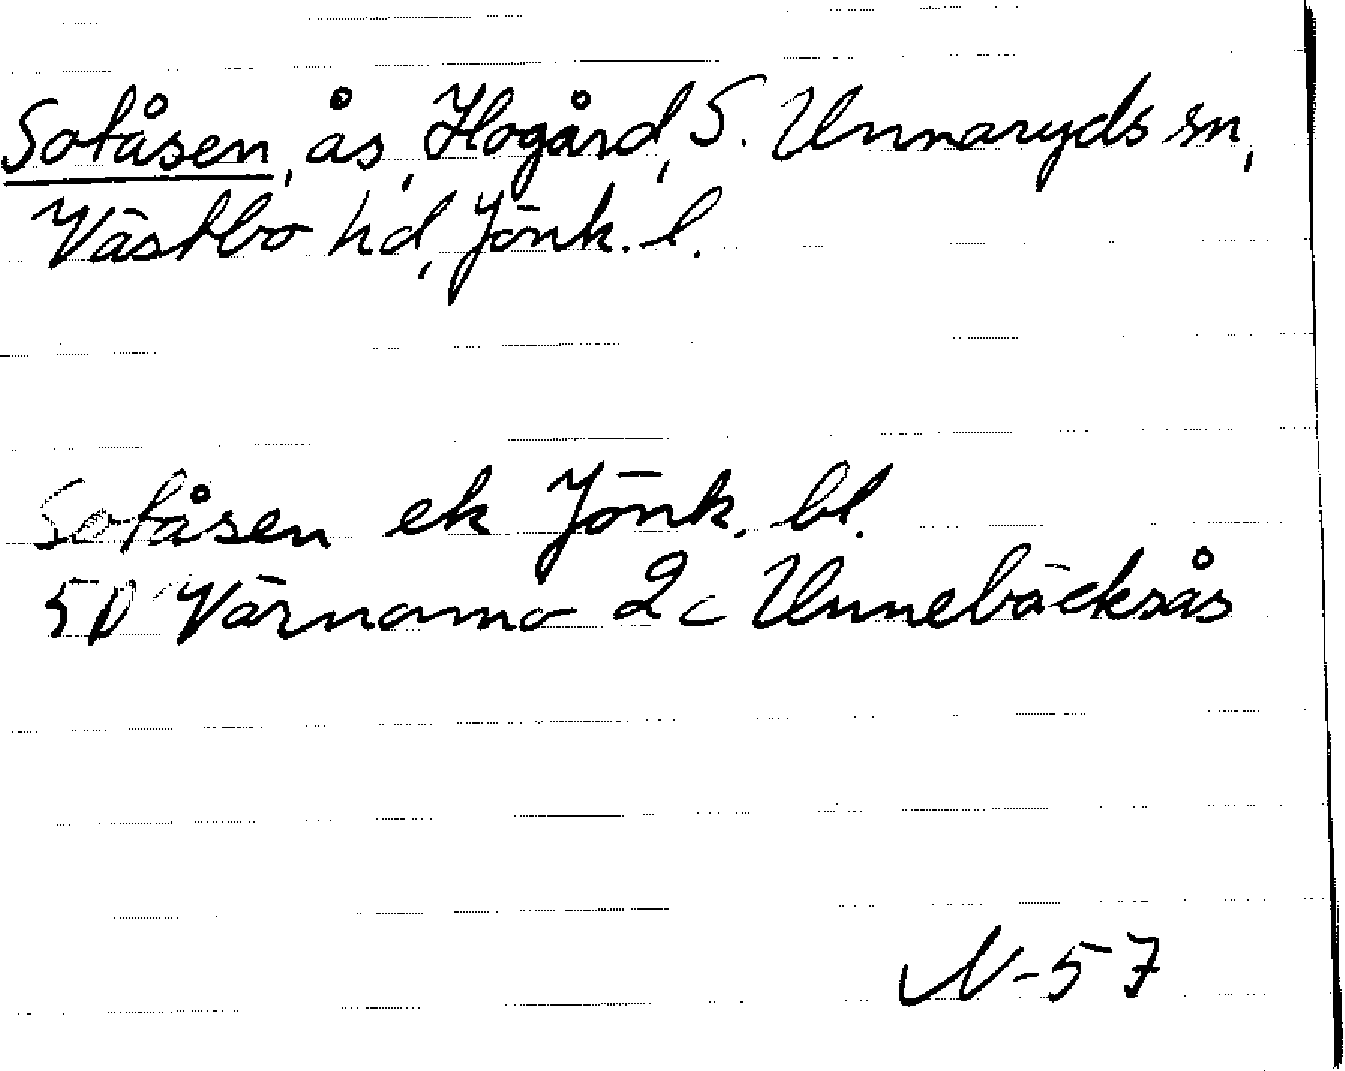 Sotåsen, ås, Hogård, S. Unnaryds sn,
Västbo hd, Jönk. l.
Sotåsen ek Jönk. bl.
5D Värnamo 2c Unnebäcksås
N-57